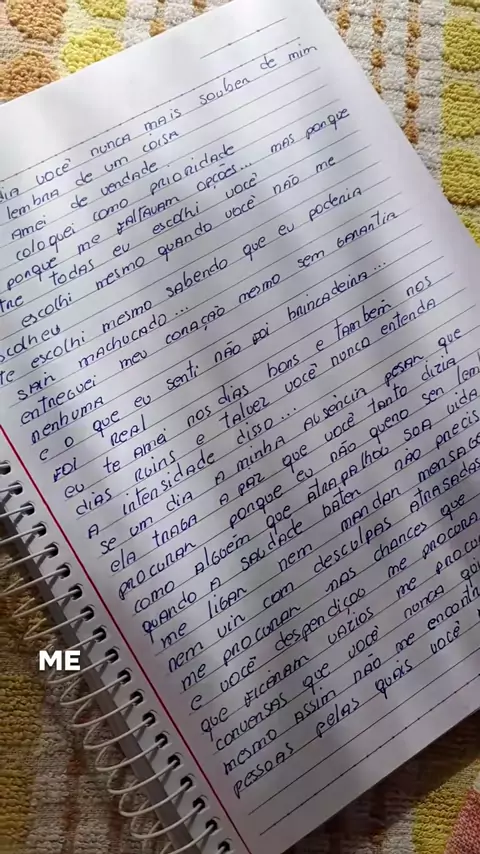 dia você nunca mais souber de mim
lembra de um coisa
Amei de verdade
coloquei como prioridade
porque me faltavam opções... mas porque
tre todas eu escolhi você
escolhi mesmo quando você não me
scolheu
te escolhi mesmo sabendo que eu poderia
sair machucado...
entreguei meu coração mesmo sem garantia
nenhuma
e o que eu senti não foi brincadeira...
foi real
eu te amei nos dias bons e também nos
dias ruins e talvez você nunca entenda
A intensidade disso...
se um dia a minha ausência pesar que
ela traga a paz que você tanto dizia
procurar porque eu não quero ser lem
como alguém que atrapalhou sua vida
quando a saudade bater não precis
me ligar nem mandar mensage
nem vir com desculpas atrasadas
me procurar nas chances que
e você desperdiçou me procura
que ficaram vazios me procu
conversas que você nunca qui
mesmo assim não me encontr
pessoas pelas quais você
ME